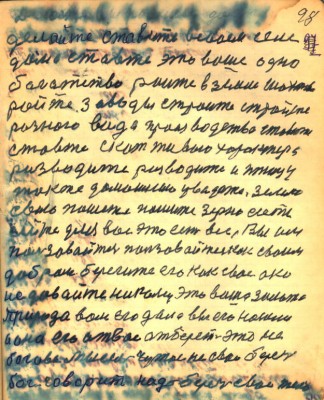 98
делайте ставите
дома ставте это ваше одно
богатство роите в земли шахты
ройте. Заводы строите стройте
разного вида производство ставите
ставте скот
разводите разводите и птицу
также домашнию уведите. Землю
свою пашете пашите зерно сеете
сейте для вас это есть все, Вы им
пользовайтеся пользовайтеся как своим
добром берегите его как свое око
не давайте никому это ваше
природа вам его дала вы его нашли
она его от вас отберет это не
богово. Мысль чужое не свое берет
бог говорит надо беречь свое